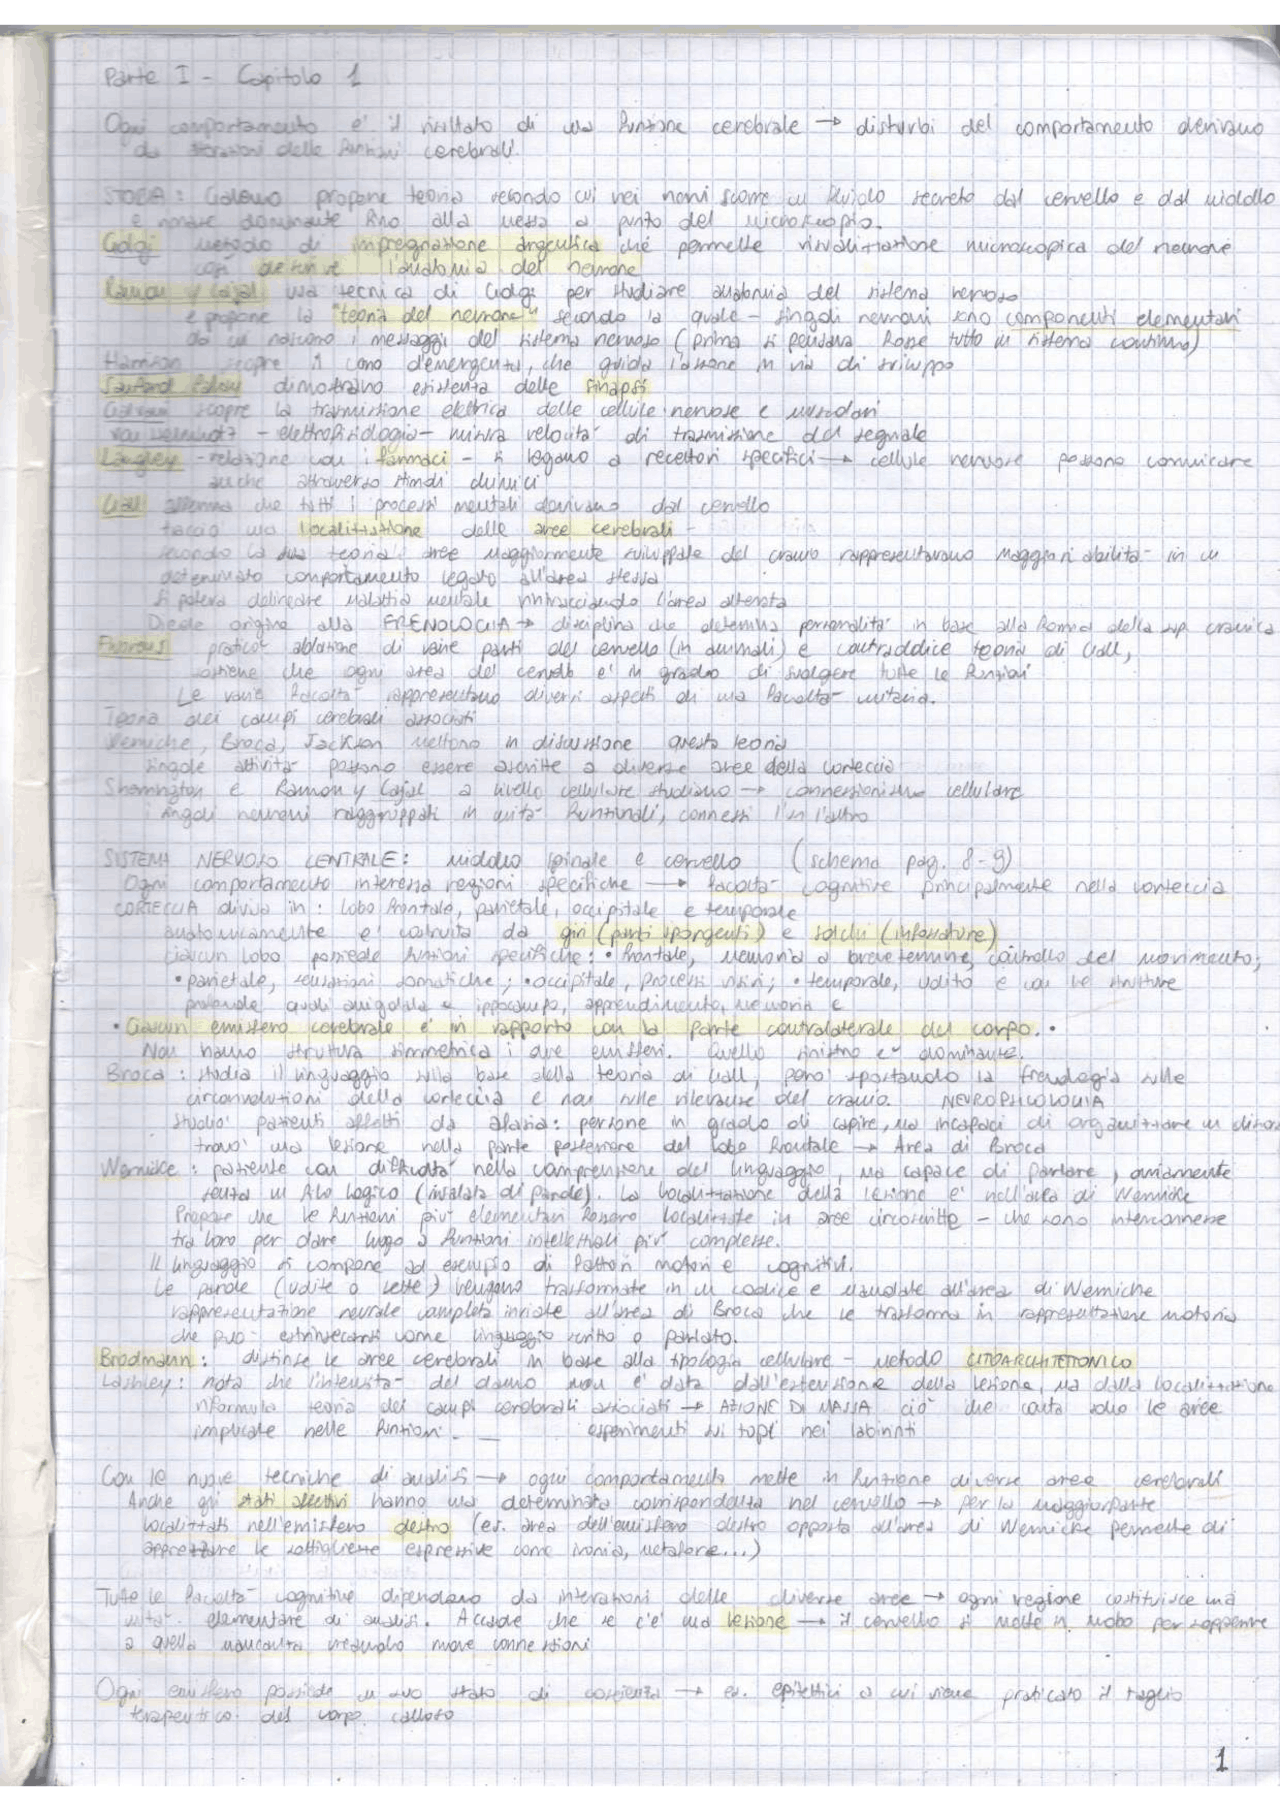 Parte I - Capitolo 1
Ogni comportamento e' il risultato di una funzione cerebrale → disturbi del comportamento derivano
da alterazioni delle funzioni cerebrali.
STORIA: Galeno propone teoria secondo cui nei nervi scorre un fluido secreto dal cervello e dal midollo
e rimane dominante fino alla messa a punto del microscopio.
Golgi metodo di impregnazione argentica che permette visualizzazione microscopica del neurone
così definì l'anatomia del neurone
Ramon y Cajal usa tecnica di Golgi per studiare anatomia del sistema nervoso
e propone la "teoria del neurone" secondo la quale - singoli neuroni sono componenti elementari
da cui nascono i messaggi del sistema nervoso (prima si pensava fosse tutto un sistema continuo)
Harrison scopre il cono d'emergenza, che guida l'assone in via di sviluppo
dimostrano esistenza delle sinapsi
Galvani scopre la trasmissione elettrica delle cellule nervose e muscolari
von Helmholtz - elettrofisiologia - misura velocità di trasmissione del segnale
Langley - relazione con i farmaci - si legano a recettori specifici → cellule nervose possono comunicare
anche attraverso stimoli chimici
Gall afferma che tutti i processi mentali derivano dal cervello
traccia una localizzazione delle aree cerebrali -
secondo la sua teoria le aree maggiormente sviluppate del cranio rappresentavano maggiori abilità in un
determinato comportamento legato all'area stessa
Si poteva delineare malattia mentale rintracciando l'area alterata
Diede origine alla FRENOLOGIA → disciplina che determina personalità in base alla forma della sup. cranica
Flourens praticò ablazione di varie parti del cervello (in animali) e contraddice teoria di Gall,
sostiene che ogni area del cervello e' in grado di svolgere tutte le funzioni
Le varie facoltà rappresentano diversi aspetti di una facoltà unitaria.
Teoria dei campi cerebrali associati
Wernicke, Broca, Jackson mettono in discussione questa teoria
singole attività possono essere ascritte a diverse aree della corteccia
Sherrington e Ramon y Cajal a livello cellulare studiano → connessionismo cellulare
i singoli neuroni raggruppati in unità funzionali, connessi l'un l'altro
SISTEMA NERVOSO CENTRALE: midollo spinale e cervello (schema pag. 8-9)
Ogni comportamento interessa regioni specifiche → facoltà cognitive principalmente nella corteccia
CORTECCIA divisa in: lobo frontale, parietale, occipitale e temporale
anatomicamente e' costruita da giri (parti sporgenti) e solchi (infossature)
Ciascun lobo possiede funzioni specifiche: • frontale, memoria a breve termine, controllo del movimento;
• parietale, sensazioni somatiche; • occipitale, processi visivi; • temporale, udito e con le strutture
profonde quali amigdala e ippocampo, apprendimento, memoria e
• Ciascun emisfero cerebrale e' in rapporto con la parte controlaterale del corpo. •
Non hanno struttura simmetrica i due emisferi. Quello sinistro e' dominante.
Broca: studia il linguaggio sulla base della teoria di Gall, però spostando la frenologia sulle
circonvoluzioni della corteccia e non sulle rilevanze del cranio. NEUROPSICOLOGIA
Studiò pazienti affetti da afasia: persone in grado di capire, ma incapaci di organizzare un discorso
trovò una lesione nella parte posteriore del lobo frontale → Area di Broca
Wernicke: paziente con difficoltà nella comprensione del linguaggio, ma capace di parlare, ovviamente
senza un filo logico (insalata di parole). La localizzazione della lesione e' nell'area di Wernicke
Propose che le funzioni più elementari fossero localizzate in aree circoscritte - che sono interconnesse
tra loro per dare luogo a funzioni intellettuali più complesse.
Il linguaggio si compone ad esempio di fattori motori e cognitivi.
Le parole (udite o lette) vengono trasformate in un codice e mandate all'area di Wernicke
rappresentazione neurale completa inviate all'area di Broca che le trasforma in rappresentazione motoria
che può estrinsecarsi come linguaggio scritto o parlato.
Brodmann: distinse le aree cerebrali in base alla tipologia cellulare - metodo CITOARCHITETTONICO
Lashley: nota che l'intensità del danno non e' data dall'estensione della lesione, ma dalla localizzazione
riformula teoria dei campi cerebrali associati → AZIONE DI MASSA ciò che conta sono le aree
implicate nelle funzioni. esperimenti sui topi nei labirinti
Con le nuove tecniche di analisi → ogni comportamento mette in funzione diverse aree cerebrali
Anche gli stati affettivi hanno una determinata corrispondenza nel cervello → per la maggior parte
localizzati nell'emisfero destro (es. area dell'emisfero destro opposta all'area di Wernicke permette di
apprezzare le sottigliezze espressive come ironia, metafore...)
Tutte le facoltà cognitive dipendono da interazioni delle diverse aree → ogni regione costituisce una
unità elementare di analisi. Accade che se c'e' una lesione → il cervello si mette in moto per sopperire
a quella mancanza creando nuove connessioni
Ogni emisfero possiede un suo stato di coscienza → es. epilettici a cui viene praticato il taglio
terapeutico del corpo calloso
1